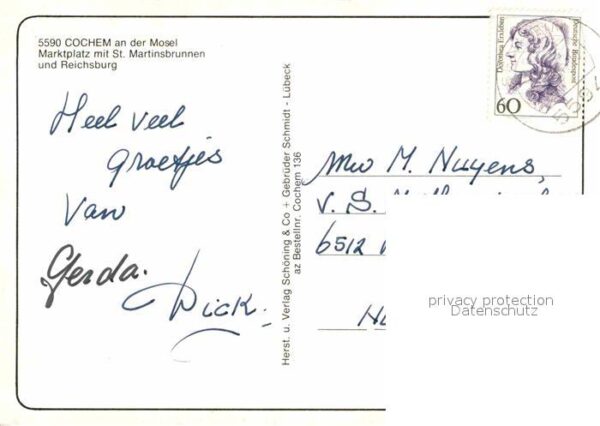 5590 COCHEM an der Mosel
Marktplatz mit St. Martinsbrunnen
und Reichsburg
Heel veel
groetjes
van
Gerda.
Dick.
Herst. u. Verlag Schöning & Co + Gebrüder Schmidt - Lübeck
az Bestellnr. Cochem 136
Dorothea Erxleben
Deutsche Bundespost
60
Mw M. Nuyens,
v. S.
6512
privacy protection
Datenschutz